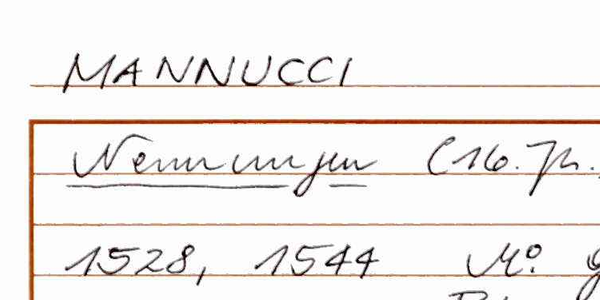 MANNUCCI
Nennungen (16. Jh.
1528, 1544 Mo.